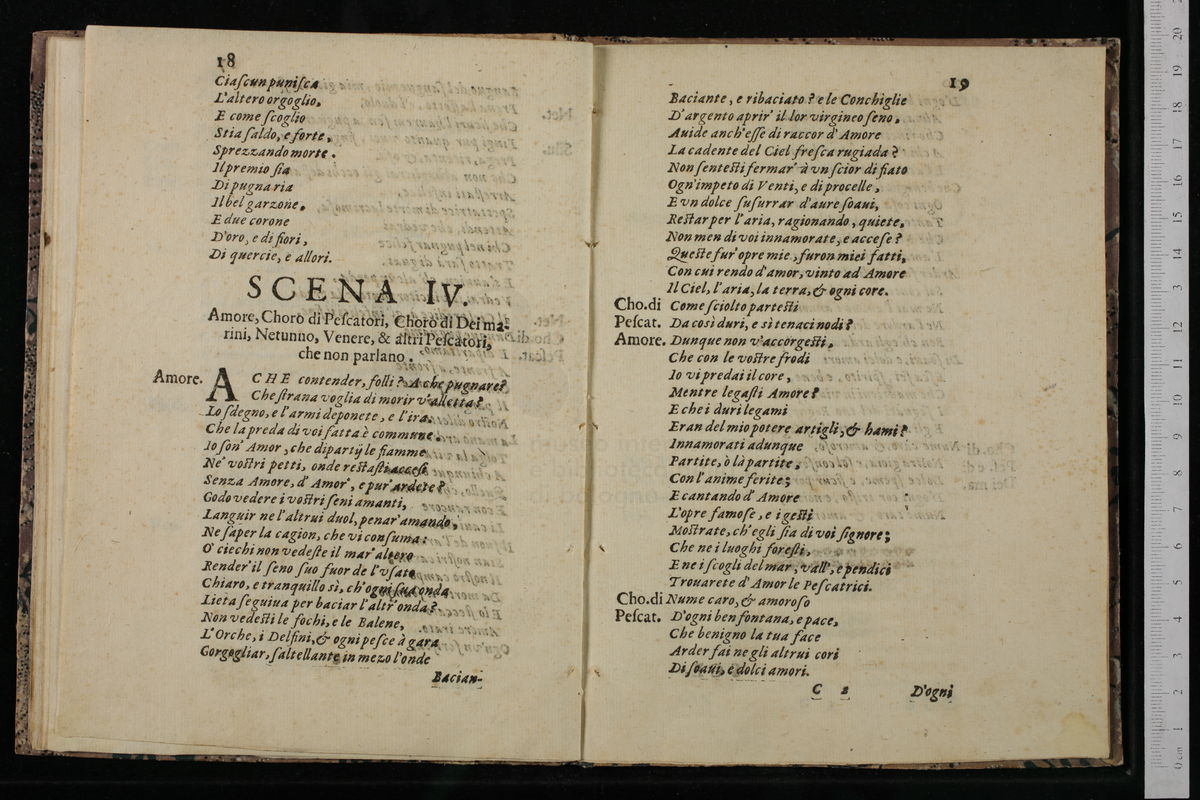 18
Ciaſcun puniſca
L'altero orgoglio,
E come ſcoglio
Stia ſaldo, e forte,
Sprezzando morte.
Il premio ſia
Di pugna ria
Il bel garzone,
E due corone
D'oro, e di fiori,
Di quercie, e allori.
SCENA IV.
Amore, Choro di Peſcatori, Choro di Dei ma-
rini, Netunno, Venere, & altri Peſcatori,
che non parlano.
Amore. A CHE contender, folli? A che pugnare?
Che ſtrana voglia di morir v'alletta?
Lo ſdegno, e l'armi deponete, e l'ira,
Che la preda di voi fatta è commune.
Io ſon' Amor, che dipartij le fiamme
Ne' voſtri petti, onde reſtaſti acceſi
Senza Amore, d'Amor', e pur' ardete?
Godo vedere i voſtri ſeni amanti,
Languir ne l'altrui duol, penar' amando,
Ne ſaper la cagion, che vi conſuma.
O' ciechi non vedeſte il mar' altero
Render' il ſeno ſuo fuor de l'vſato
Chiaro, e tranquillo sì, ch'ogni ſua onda
Lieta ſeguiua per baciar l'altr'onda?
Non vedeſti le fochi, e le Balene,
L'Orche, i Delfini, & ogni peſce à gara
Gorgogliar, ſaltellante in mezo l'onde
Bacian-
19
Baciante, e ribaciato? e le Conchiglie
D'argento aprir' il lor virgineo ſeno,
Auide anch'eſſe di raccor d'Amore
La cadente del Ciel freſca rugiada?
Non ſenteſti fermar' à vn ſcior di fiato
Ogn'impeto di Venti, e di procelle,
E vn dolce ſuſurrar d'aure ſoaui,
Reſtar per l'aria, ragionando, quiete,
Non men di voi innamorate, e acceſe?
Queſte fur' opre mie, furon miei fatti,
Con cui rendo d'amor, vinto ad Amore
Il Ciel, l'aria, la terra, & ogni core.
Cho.di Come ſciolto parteſti
Peſcat. Da così duri, e sì tenaci nodi?
Amore. Dunque non v'accorgeſti,
Che con le voſtre frodi
Io vi predai il core,
Mentre legaſti Amore?
E che i duri legami
Eran del mio potere artigli, & hami?
Innamorati adunque
Partite, ò là partite,
Con l'anime ferite;
E cantando d'Amore
L'opre famoſe, e i geſti
Moſtrate, ch'egli ſia di voi ſignore;
Che ne i luoghi foreſti,
E ne i ſcogli del mar, vall', e pendici
Trouarete d'Amor le Peſcatrici.
Cho.di Nume caro, & amoroſo
Peſcat. D'ogni ben fontana, e pace,
Che benigno la tua face
Arder fai ne gli altrui cori
Di ſoaui, e dolci amori.
C 2 D'ogni